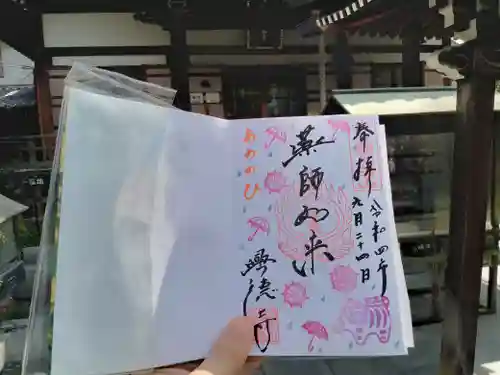 奉拝
令和四年
九月二十四日
薬師如来
興徳寺
あめのひ